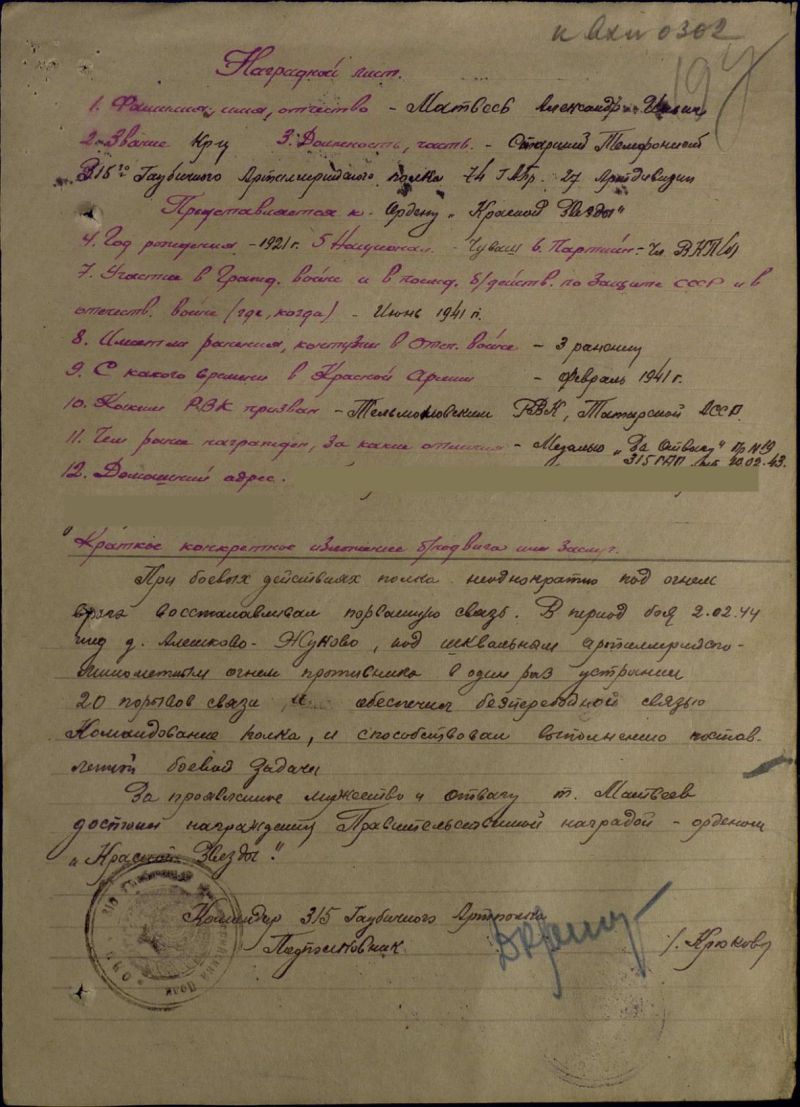 к вх № 0302
197
Наградной лист.
1. Фамилия, имя, отчество - Матвеев Александр Ильич
2. Звание Кр-ц 3. Должность, часть. - Старший Телефонист
315го Гаубичного Артиллерийского полка 74 ГАбр. 27 Артдивизии
Представляется к. Ордену „Красной Звезды"
4. Год рождения - 1921 г. 5 Национал. - Чуваш 6. Партийн. - Чл. ВКП(б)
7. Участие в Гражд. войне и в послед. б/действ. по защите СССР и в
отечеств. войне (где, когда) - Июнь 1941 г.
8. Имеет ли ранения, контузии в Отеч. войне - 3 ранения
9. С какого времени в Красной Армии - февраль 1941 г.
10. Каким РВК призван - Тельмановским РВК, Татарской АССР
11. Чем ранее награжден, за какие отличия - Медалью „За Отвагу" Пр № 19
315 ГАП 20.02.43.
12. Домашний адрес.
Краткое конкретное изложение б/подвига или заслуг.
При боевых действиях полка неоднократно под огнем
врага восстанавливал порванную связь. В период боя 2.02.44
под д. Алешково - Жуково, под шквальным артиллерийско-
минометным огнем противника в один раз устранил
20 порывов связи, и обеспечил бесперебойной связью
Командование полка, и способствовал выполнению постав-
ленной боевой задачи
За проявленное мужество и отвагу т. Матвеев
достоин награждения Правительственной наградой - орденом
„Красной Звезды".
Командир 315 Гаубичного Артполка
Подполковник /. Крюков/